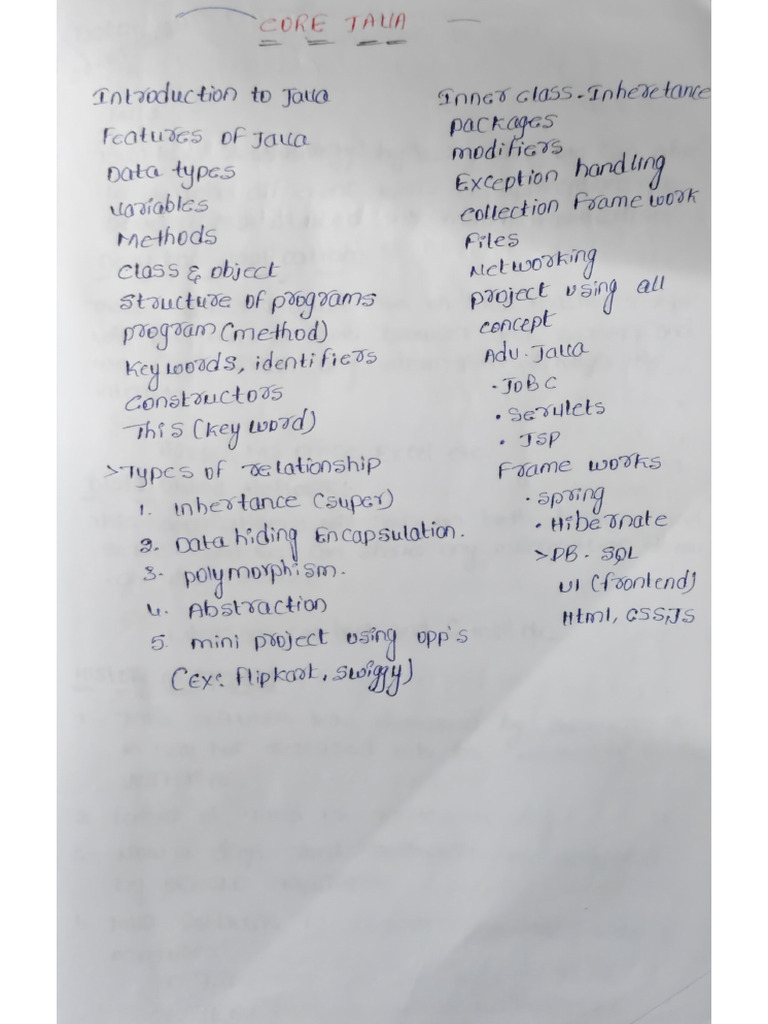 CORE JAVA
Introduction to Java
Features of Java
Data types
variables
Methods
class & object
structure of programs
program (method)
key words, identifiers
constructors
This (key word)
>Types of relationship
1. Inhertance (super)
2. Data hiding Encapsulation.
3. polymorphism.
4. Abstraction
5. mini project using opp's
(ex: flipkart, swiggy)
Inner class - Inheretance
packages
modifiers
Exception handling
collection frame work
Files
Networking
project using all
concept
Adv. Java
• JDBC
• Servlets
• JSP
Frame works
• spring
• Hibernate
> DB - SQL
UI (frontend)
Html, CSS, JS